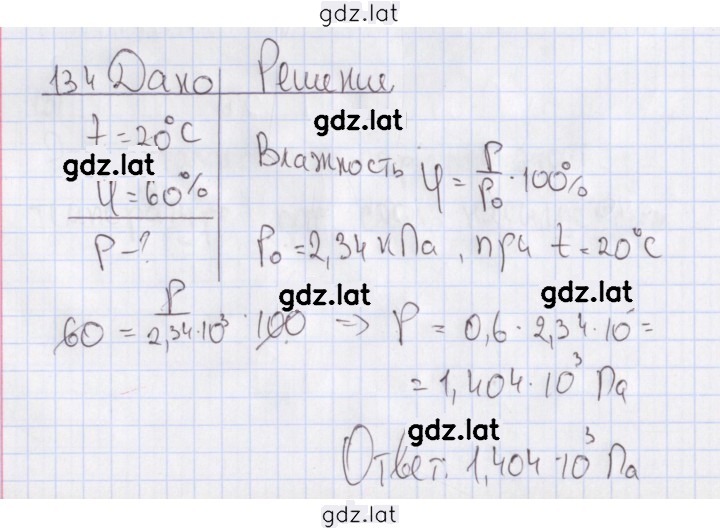 gdz.lat
134 Дано Решение
gdz.lat
t = 20°C
gdz.lat
Влажность φ = P/P₀ · 100%
φ = 60%
P - ?
P₀ = 2,34 кПа, при t = 20°C
gdz.lat
gdz.lat
60 = P/2,34·10³ · 100 => P = 0,6 · 2,34 · 10³ =
= 1,404 · 10³ Па
gdz.lat
Ответ: 1,404 · 10³ Па
gdz.lat